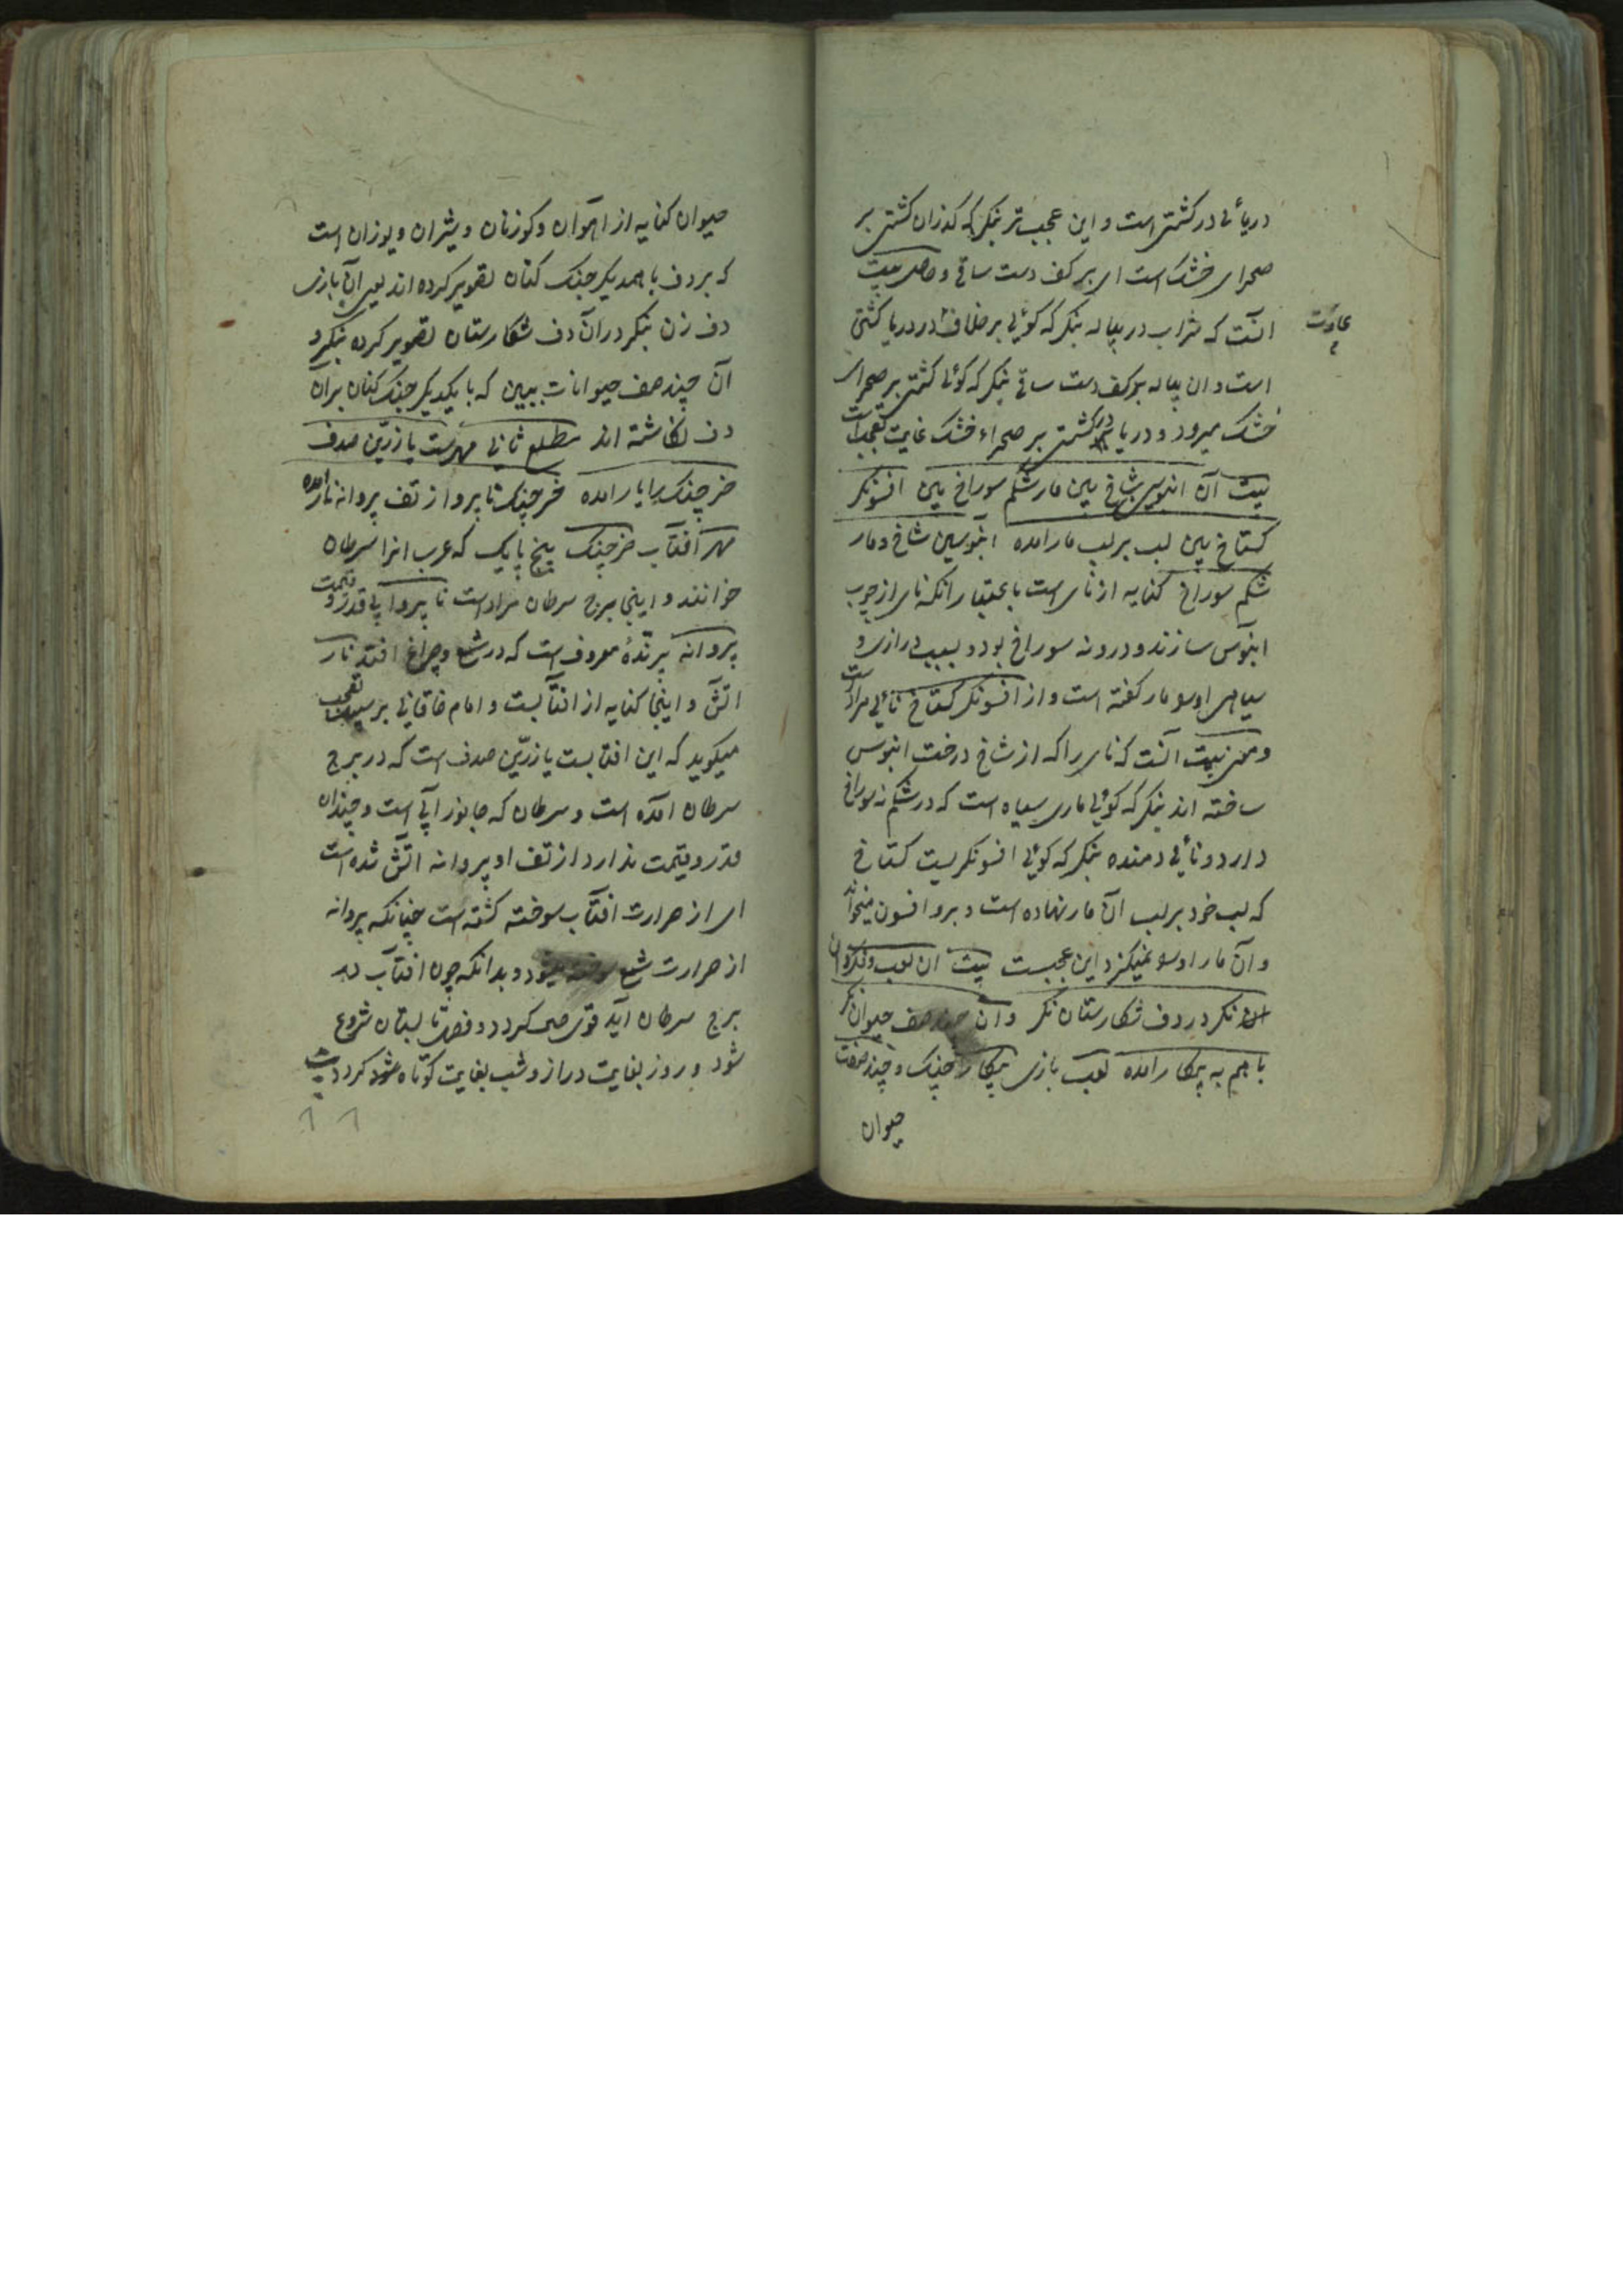 دریائی در کشتی است و این عجب‌تر بنکر که کذران کشتی بر
صحرای خشک است ای بر کف دست ساقی و حاصل بیت
انست که شراب در پیاله بنکر که کوئی بر خلاف در دریا کشتی
عادت
است و ان پیاله بر کف دست ساقی بنکر که کوئی کشتی بر صحرای
خشک میرود و دریا در کشتی بر صحراء خشک غایت تعجب است
بیت آن ابنوسین شاخ بین مار شکم سوراخ بین افسونکر
کستاخ بین لب بر لب مار امده ابنوسین شاخ و مار
شکم سوراخ کنایه از نای است باعتبار انکه نای از چوب
ابنوس سازند و درونه سوراخ بود و بسبب درازی و
سیاهی او سو مار کفته است و از افسونکر کستاخ نائی مراد است
و معنی بیت انست که نای را که از شاخ درخت ابنوس
ساخته اند بنکر که کوئی ماری سیاه است که در شکم نه سوراخ
دارد و نائی دمنده بنکر که کوئی افسونکریست کستاخ
که لب خود بر لب آن مار نهاده است و برو افسون میخواند
و آن مار اوسو نمیکزد این عجبست بیت ان لعب دف کردان
نکر در دف شکارستان نکر وان چند صف حیوان نکر
با هم به پیکار امده لعب بازی پیکار جنک و چند صف
حیوان
حیوان کنایه از اهوان و کوزنان و شیران و یوزان است
که بر دف با همدیکر جنک کنان تصویر کرده اند یعنی آن بازی
دف زن بنکر در آن دف شکارستان تصویر کرده بنکر و
آن چند صف حیوانات ببین که با یکدیکر جنک کنان بر آن
دف نکاشته اند مطلع ثانی مهرست یا زرین صدف
خرچنک را یار امده خرچنک ناپروا ز تف پروانه نار امده
مهر افتاب خرچنک پنج پایک که عرب انرا سرطان
خوانند و اینجا برج سرطان مراد است نا پروا بی قدر و قیمت
پروانه پرندهٔ معروف است که در شمع و چراغ افتد نار
اتش و اینجا کنایه از افتابست و امام خاقانی بر سبیل تعجب
میکوید که این افتابست یا زرین صدف است که در برج
سرطان امده است و سرطان که جانور آبی است و چندان
قدر و قیمت ندارد از تف او پروانه اتش شده است
ای از حرارت افتاب سوخته کشته است چنانکه پروانه
از حرارت شمع سوخته میشود و بدانکه چون افتاب در
برج سرطان آید قوی حال کردد و فصل تابستان شروع
شود و روز بغایت دراز و شب بغایت کوتاه کردد بیت